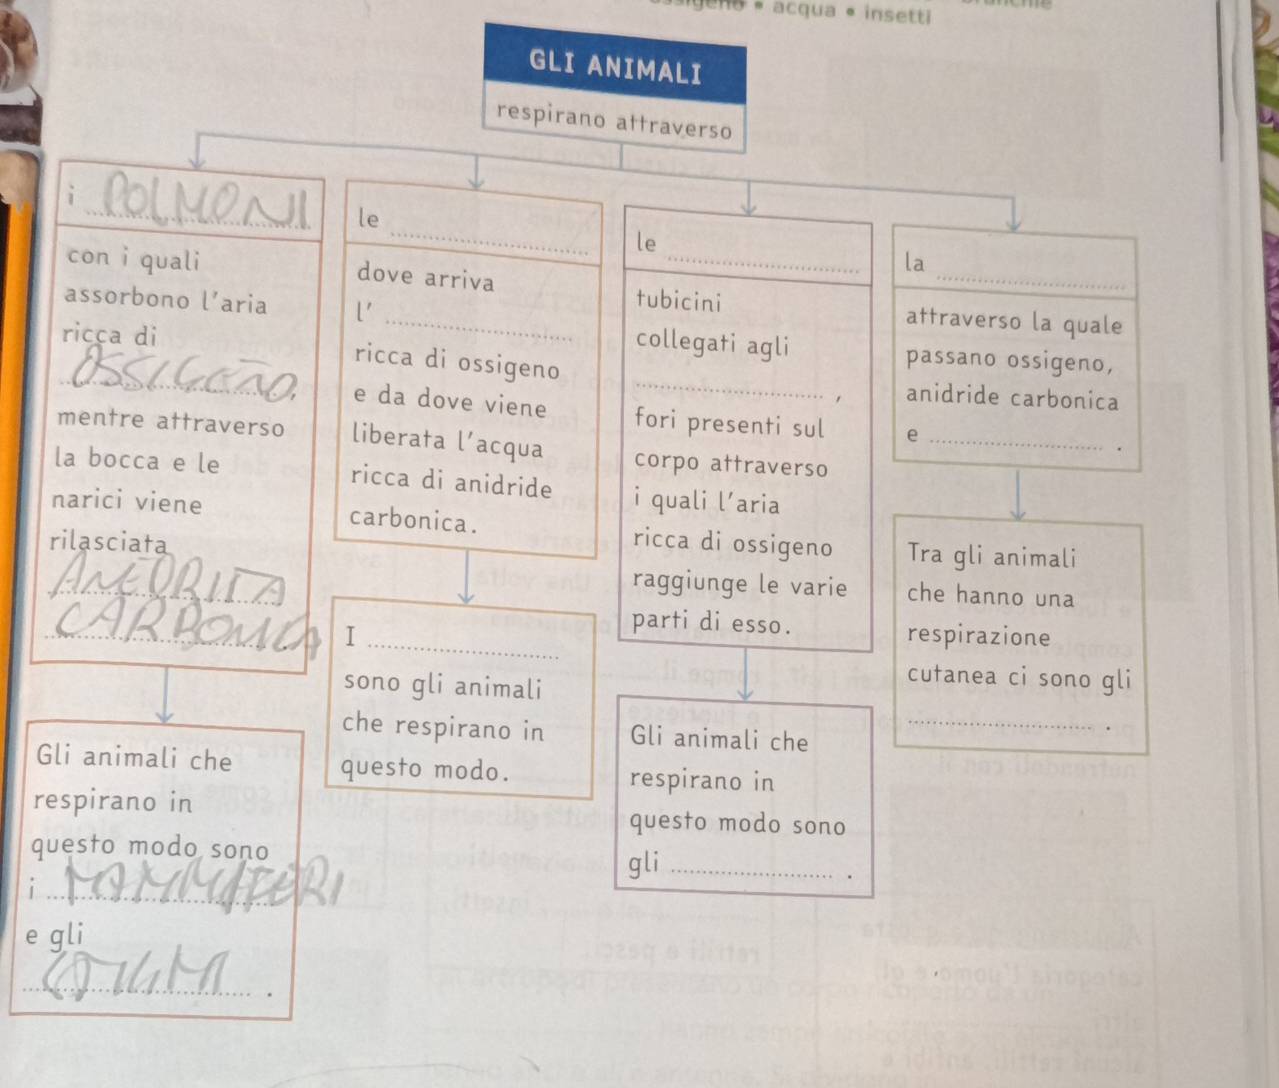 acqua • insetti
GLI ANIMALI
respirano attraverso
i POLMONI
con i quali
assorbono l'aria
ricca di
OSSIGENO,
mentre attraverso
la bocca e le
narici viene
rilasciata
ANEDRITA
CARBONICA
Gli animali che
respirano in
questo modo sono
i MAMMIFERI
e gli
.
le
dove arriva
l'
ricca di ossigeno
e da dove viene
liberata l'acqua
ricca di anidride
carbonica.
I
sono gli animali
che respirano in
questo modo.
le
tubicini
collegati agli
,
fori presenti sul
corpo attraverso
i quali l'aria
ricca di ossigeno
raggiunge le varie
parti di esso.
Gli animali che
respirano in
questo modo sono
gli .
la
attraverso la quale
passano ossigeno,
anidride carbonica
e .
Tra gli animali
che hanno una
respirazione
cutanea ci sono gli
.